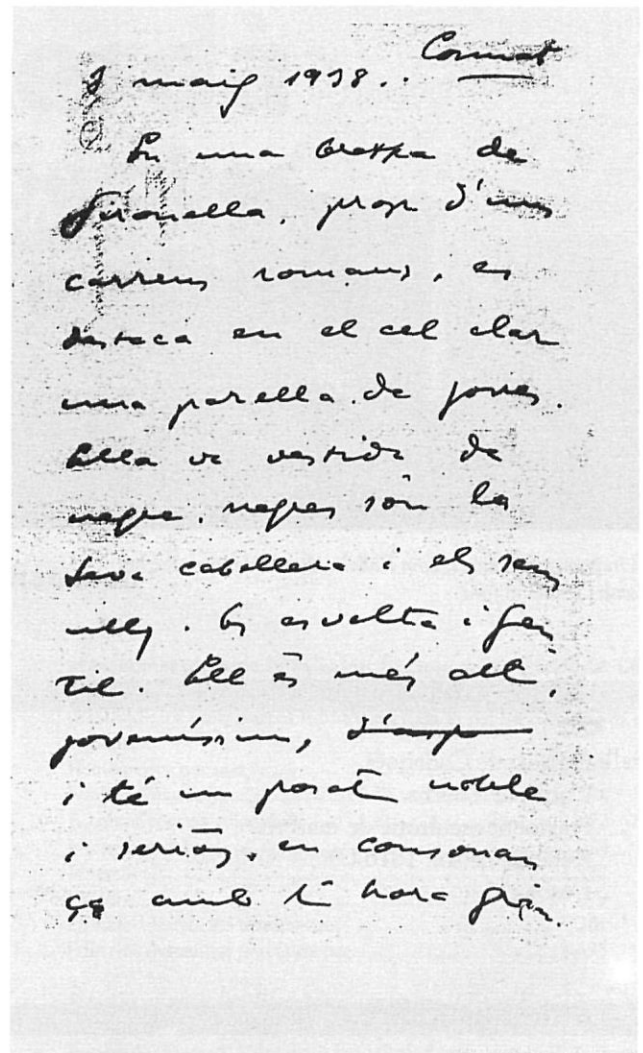 Comiat
maig 1938..
En una bretxa de
prop d'uns
carreus romans, es
destaca en el cel clar
una parella de joves.
Ella va vestida de
negre. negres són la
seva cabellera i els seus
ulls. És esvelta i gen
til. Ell és més alt,
joveníssim,
i té un posat noble
i seriós, en consonan
ça amb l'hora greu.